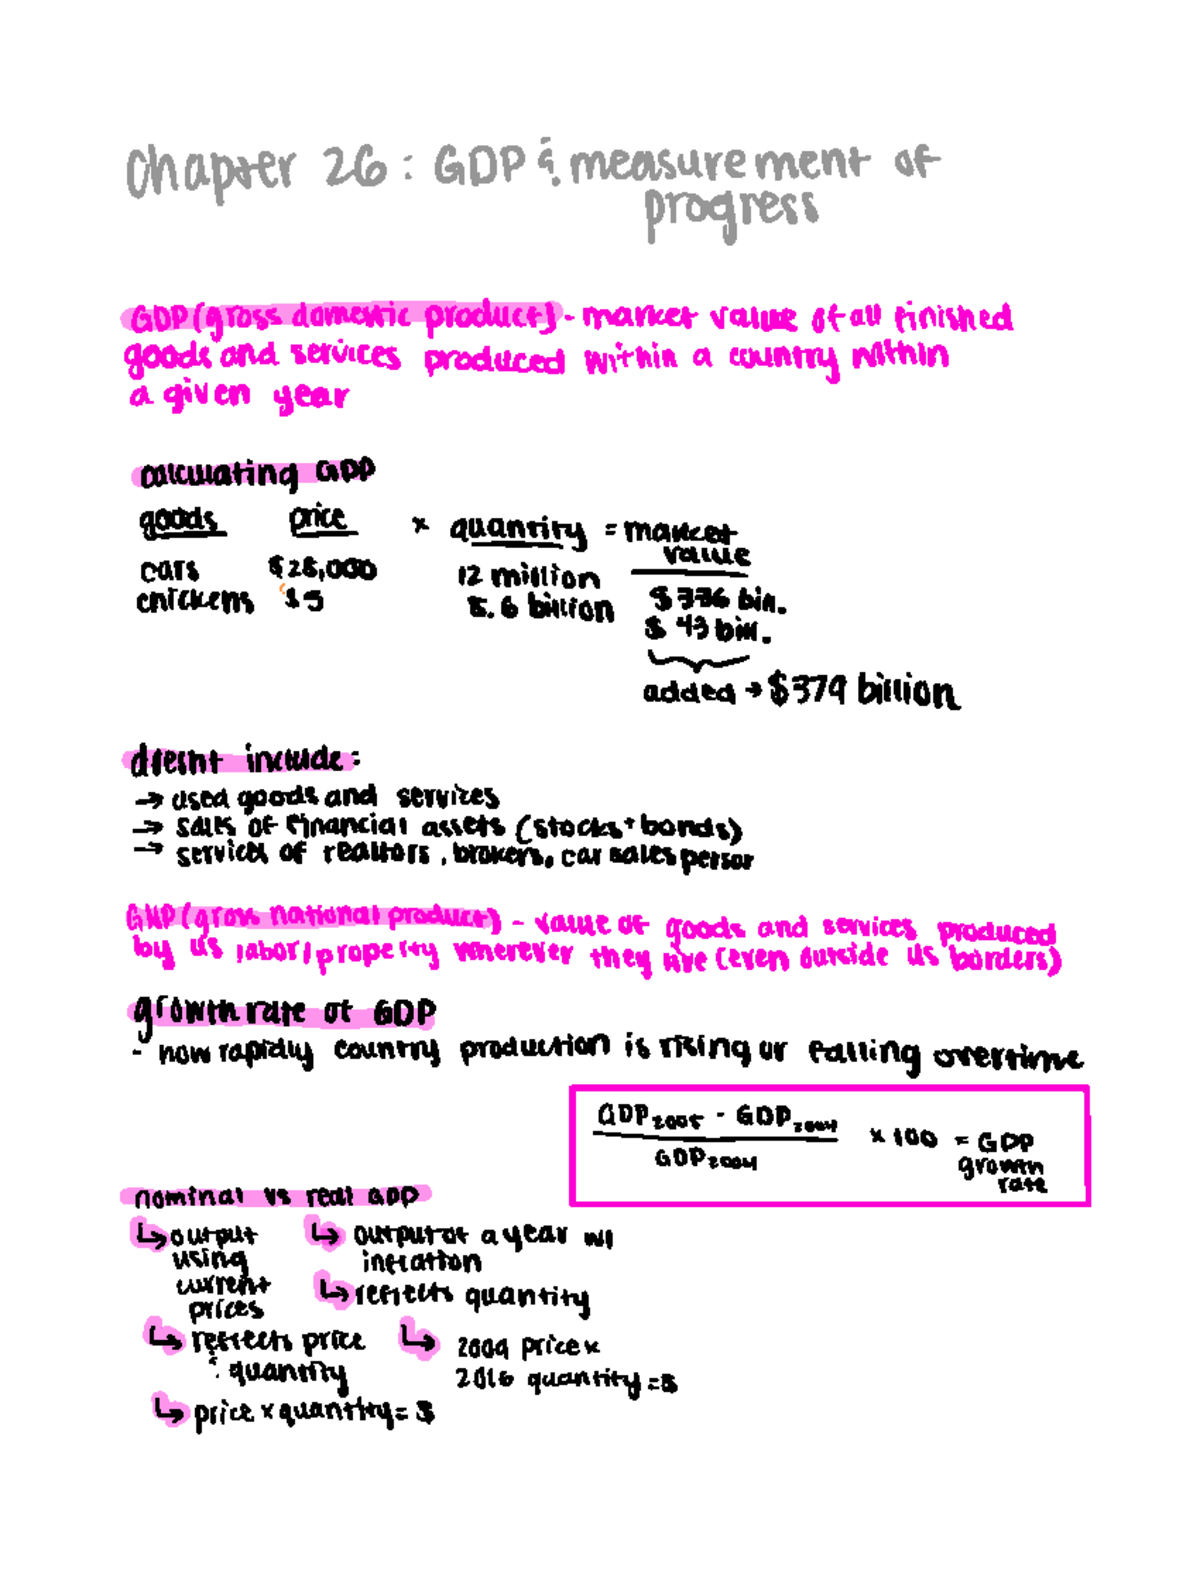 Chapter 26: GDP & measurement of
progress
GDP (gross domestic product) - market value of all finished
goods and services produced within a country within
a given year
calculating GDP
goods price x quantity = market
value
cars $28,000 12 million $336 bill.
chickens $5 8.6 billion $43 bill.
added → $379 billion
doesnt include:
→ used goods and services
→ sales of financial assets (stocks + bonds)
→ services of realtors, brokers, car sales person
GNP (gross national product) - value of goods and services produced
by US labor/property wherever they live (even outside US borders)
growth rate of GDP
- how rapidly country production is rising or falling overtime
GDP2005 - GDP2004
x 100 = GDP
GDP2004
growth
rate
nominal vs real GDP
↳ output ↳ output of a year w/
using inflation
current ↳ reflects quantity
prices
↳ reflects price ↳ 2009 price x
& quantity 2016 quantity = $
↳ price x quantity = $